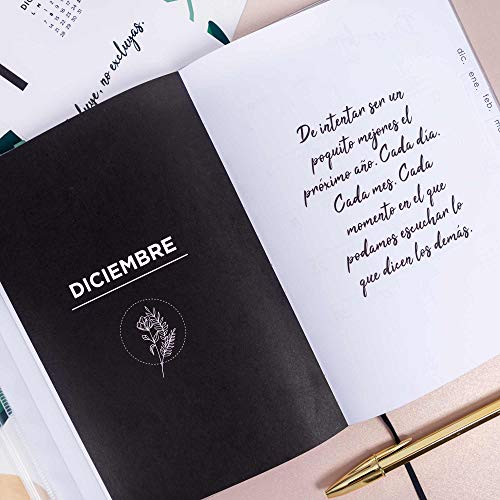 DIC
luye, no excluyas.
DICIEMBRE
De intentan ser un
poquito mejores el
próximo año. Cada día.
Cada mes. Cada
momento en el que
podamos escuchar lo
que dicen los demás.
dic. ene. feb. m